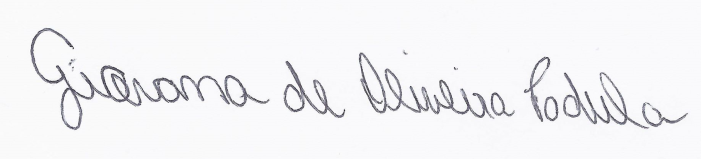 Giovana de Oliveira Padula